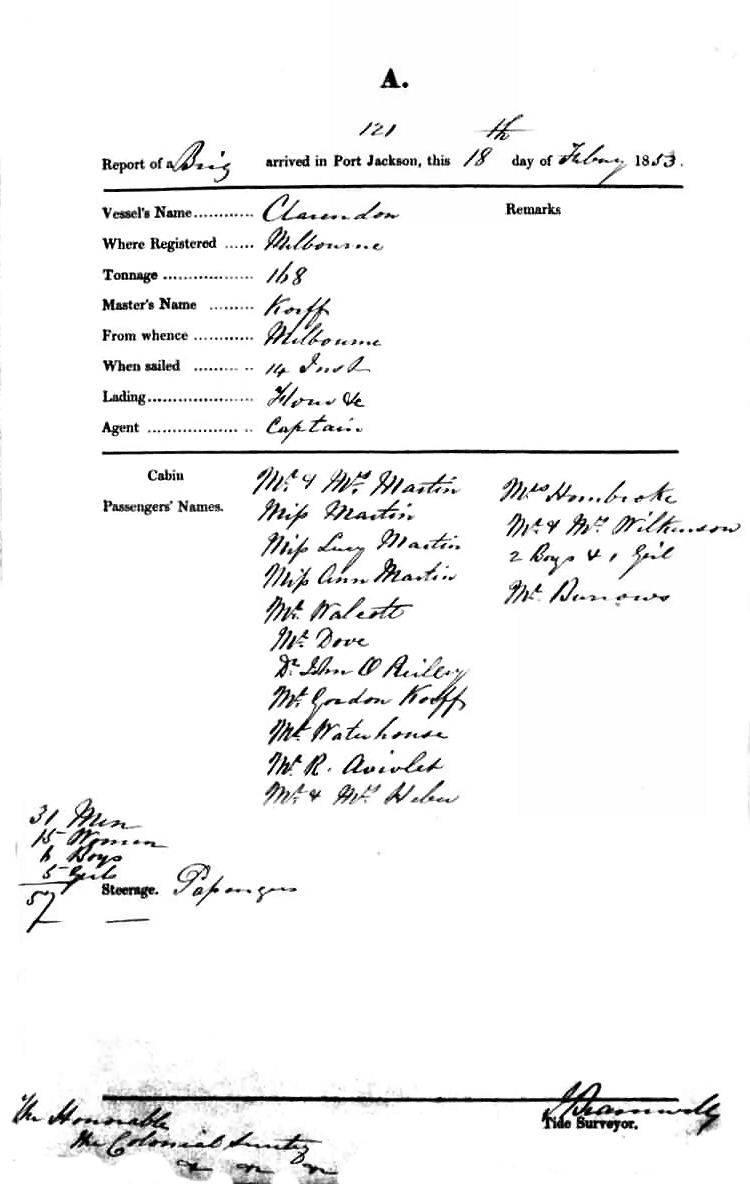 A.
121
Report of a Brig arrived in Port Jackson, this 18th day of Febuy 1853.
Vessel's Name............ Clarendon
Remarks
Where Registered ...... Melbourne
Tonnage .................. 168
Master's Name ......... Korff
From whence ............ Melbourne
When sailed ......... .. 14 Inst
Lading..................... Flour &c
Agent .................. .. Captain
Cabin
Passengers' Names.
Mr. & Mrs Martin
Miss Martin
Miss Lucy Martin
Miss Ann Martin
Mr. Walcott
Mr. Dove
Dr John O Reilly
Mr. Gordon Korff
Mr Waterhouse
Mr. R. Aviolet
Mr. & Mrs Heber
Mrs Hombroke
Mr. & Mrs Wilkinson
2 Boys & 1 Girl
Mr. Burrows
31 Men
15 Women
6 Boys
5 Girls
57
Steerage. Passengers
The Honorable
the Colonial Secretary
Tide Surveyor.